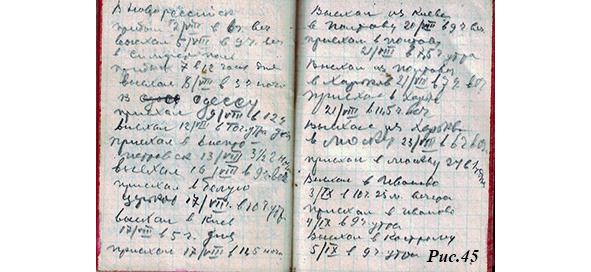 в Новороссийск
прибыл 2/VIII в 6 ч. веч
выехал 5/VIII в 9 ч. веч
в Симферополь
прибыл 7 в 12 часов дня
выехал 8/VIII в 3 ч ночи
В Одессу
приехал 9/VIII в 12 ч
Выехал 12/VIII в 10 ч. утра
приехал в Днепро-
петровск 13/VIII 3 1/2 ч
выехал 16/VIII в 9 ч. веч
приехал в белую
церковь 17/VIII в 10 ч утр
выехал в Киев
17/VIII в 5 ч. дня
приехал 17/VIII в 11,5 ночи
Выехал из Киева
в Полтаву 20/VIII в 9 ч веч
приехал в полтаву
21/VIII в 7,5 ч утра
Выехал из полтавы
в Харьков 21/VIII в 7 ч. веч
приехал в Харьк
21/VIII в 11,5 веч
Выехал из Харькова
в Москву 23/VIII в 6 ч веч
приехал в москву 24
Выехал в Иваново
3/IX в 10 ч. 25 м. вечера
приехал в Иваново
4/IX в 9 ч утра
Выехал в Кострому
5/IX в 9 ч. утра
Рис.45